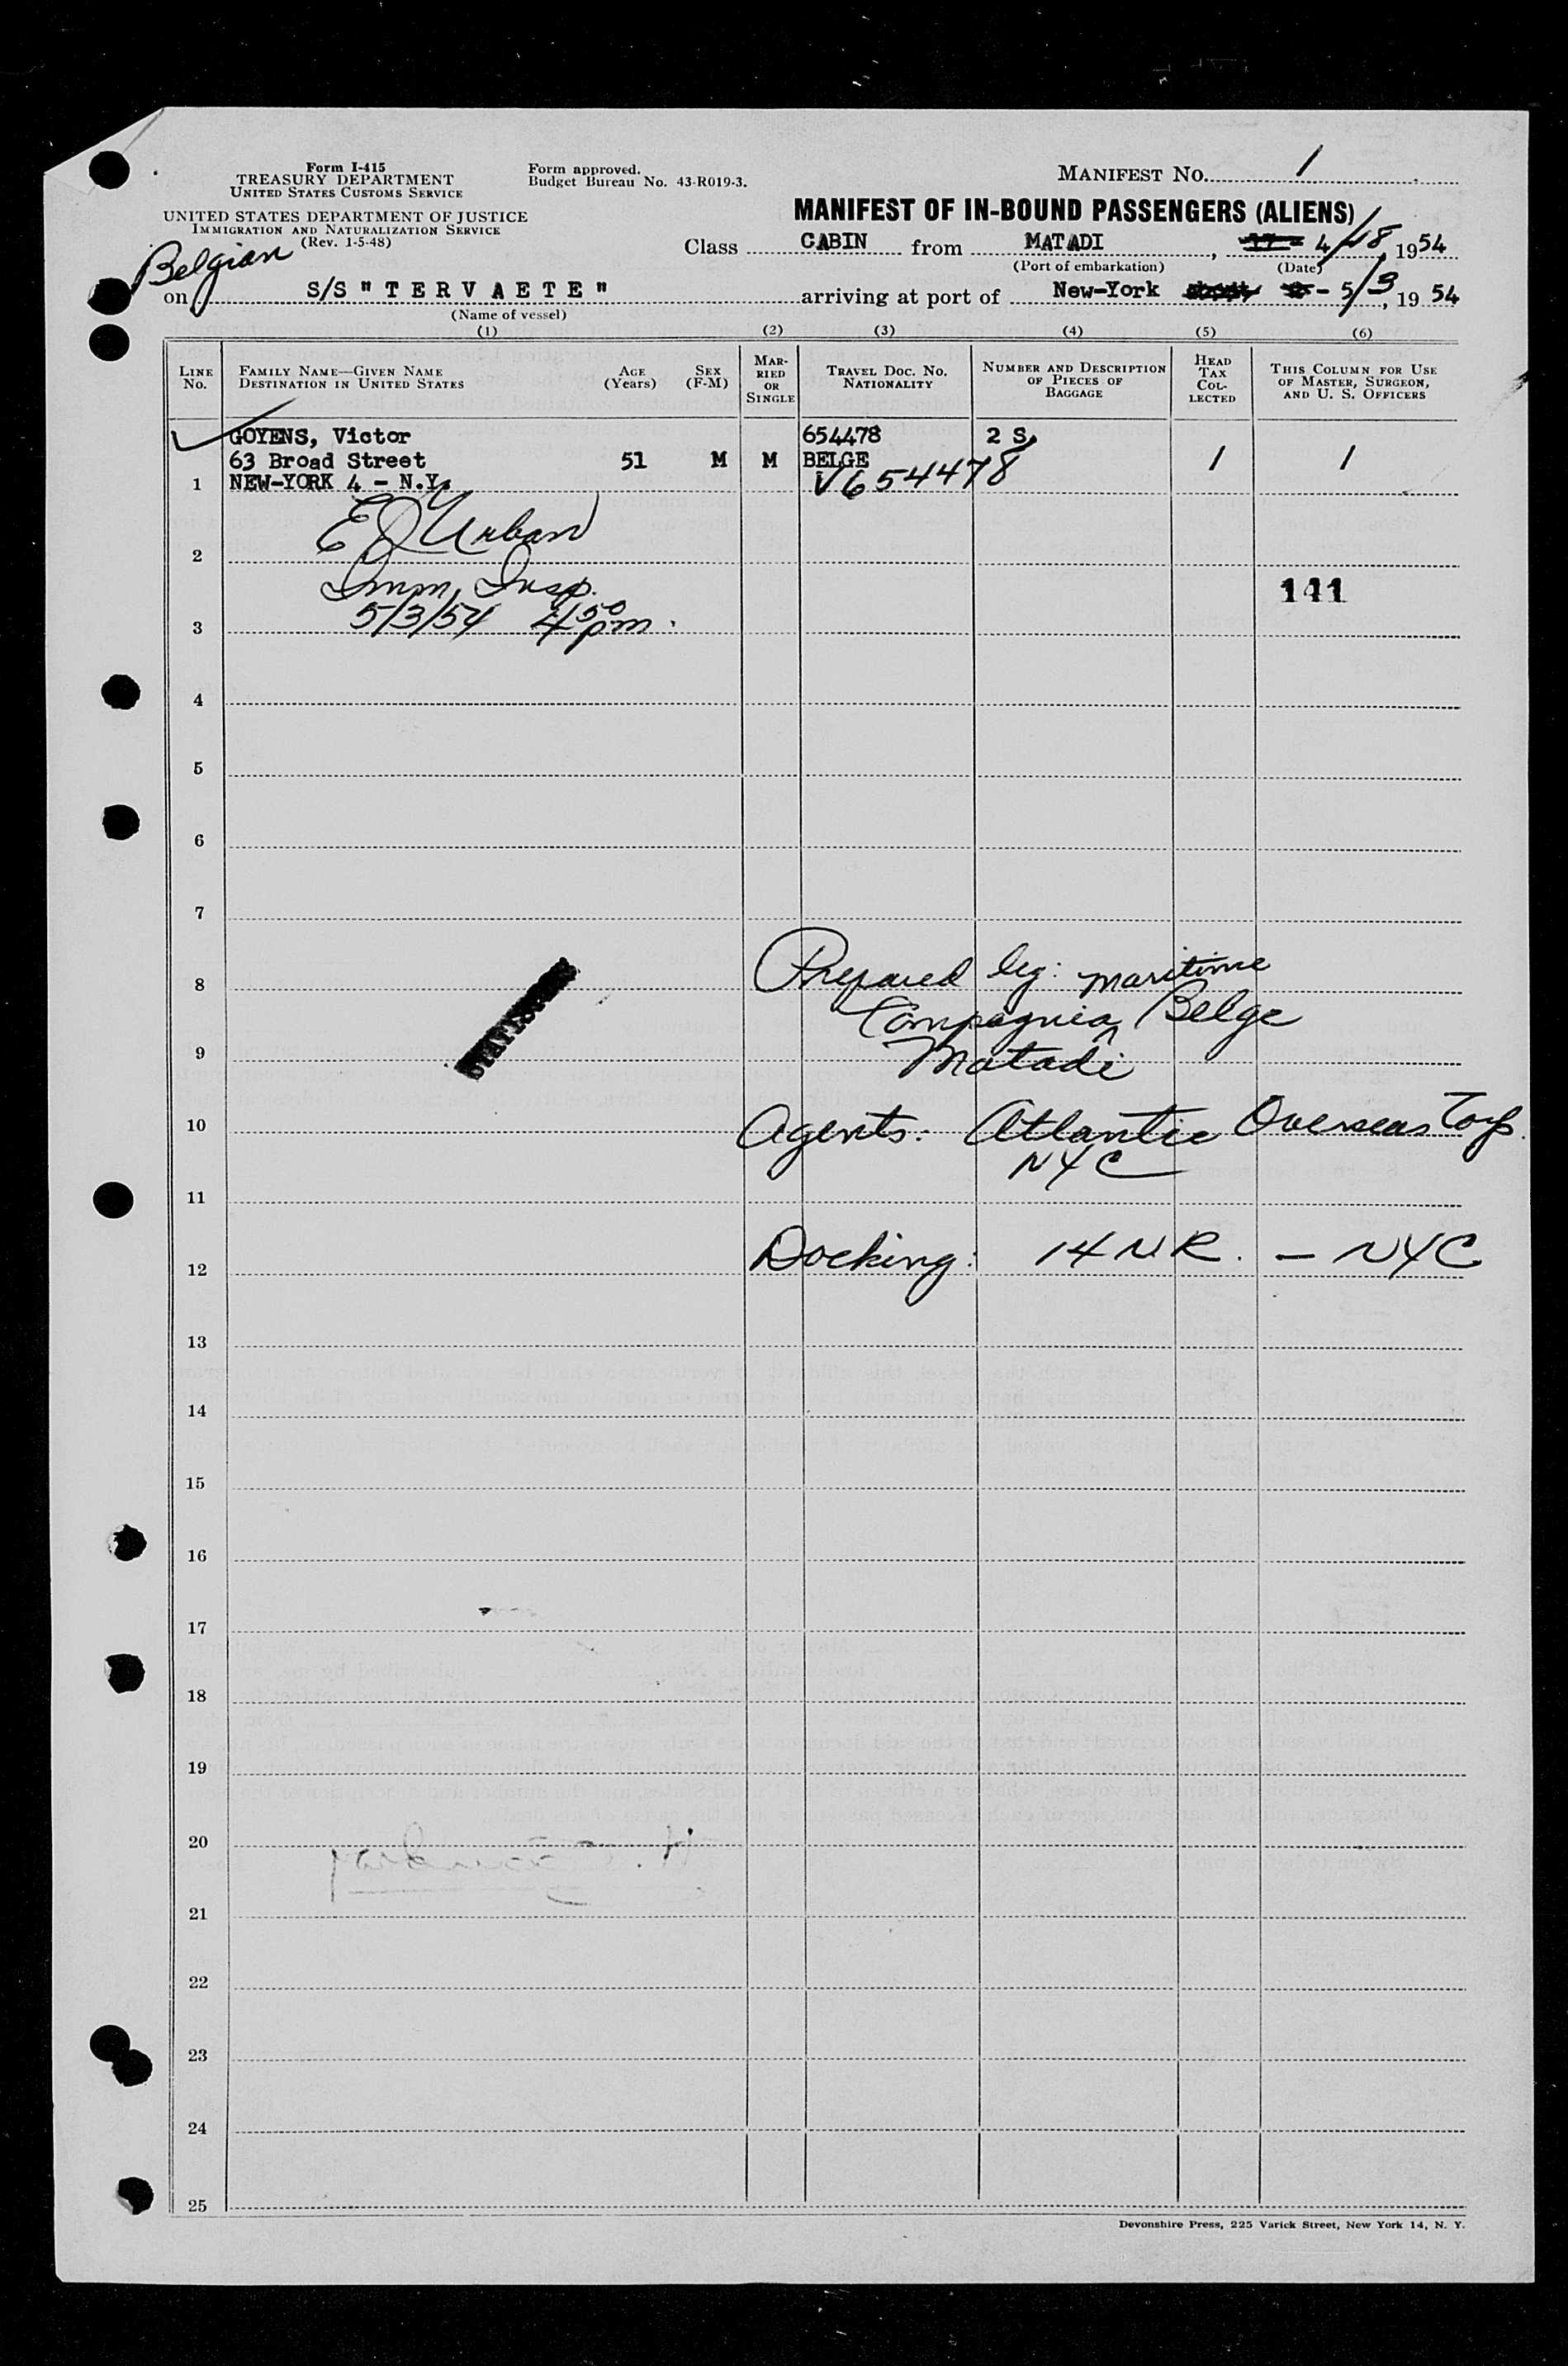 Form I-415
TREASURY DEPARTMENT
UNITED STATES CUSTOMS SERVICE
UNITED STATES DEPARTMENT OF JUSTICE
IMMIGRATION AND NATURALIZATION SERVICE
(Rev. 1-5-48)
Form approved.
Budget Bureau No. 43-R019-3.
MANIFEST No. 1
MANIFEST OF IN-BOUND PASSENGERS (ALIENS)
Class CABIN from MATADI, 4/18, 1954
(Port of embarkation) (Date)
Belgian
on S/S "TERVAETE" arriving at port of New-York - 5/3, 1954
(Name of vessel)
(1) (2) (3) (4) (5) (6)
LINE No.
FAMILY NAME—GIVEN NAME
DESTINATION IN UNITED STATES
AGE (Years)
SEX (F-M)
MARRIED OR SINGLE
TRAVEL DOC. No. NATIONALITY
NUMBER AND DESCRIPTION OF PIECES OF BAGGAGE
HEAD TAX COLLECTED
THIS COLUMN FOR USE OF MASTER, SURGEON, AND U. S. OFFICERS
GOYENS, Victor 654478 2 S.
63 Broad Street 51 M M BELGE 1 1
1 NEW-YORK 4 - N.Y. V654478
E J Urban
2
Imm. Insp. 141
5/3/54 4 50 pm.
3
4
5
6
7
8 Prepared by: maritime
Compagnia Belge
9 Matadi
10 Agents: Atlantic Overseas Corp.
NYC
11
12 Docking: 14 N.R. - NYC
13
14
15
16
17
18
19
20
21
22
23
24
25
Devonshire Press, 225 Varick Street, New York 14, N. Y.